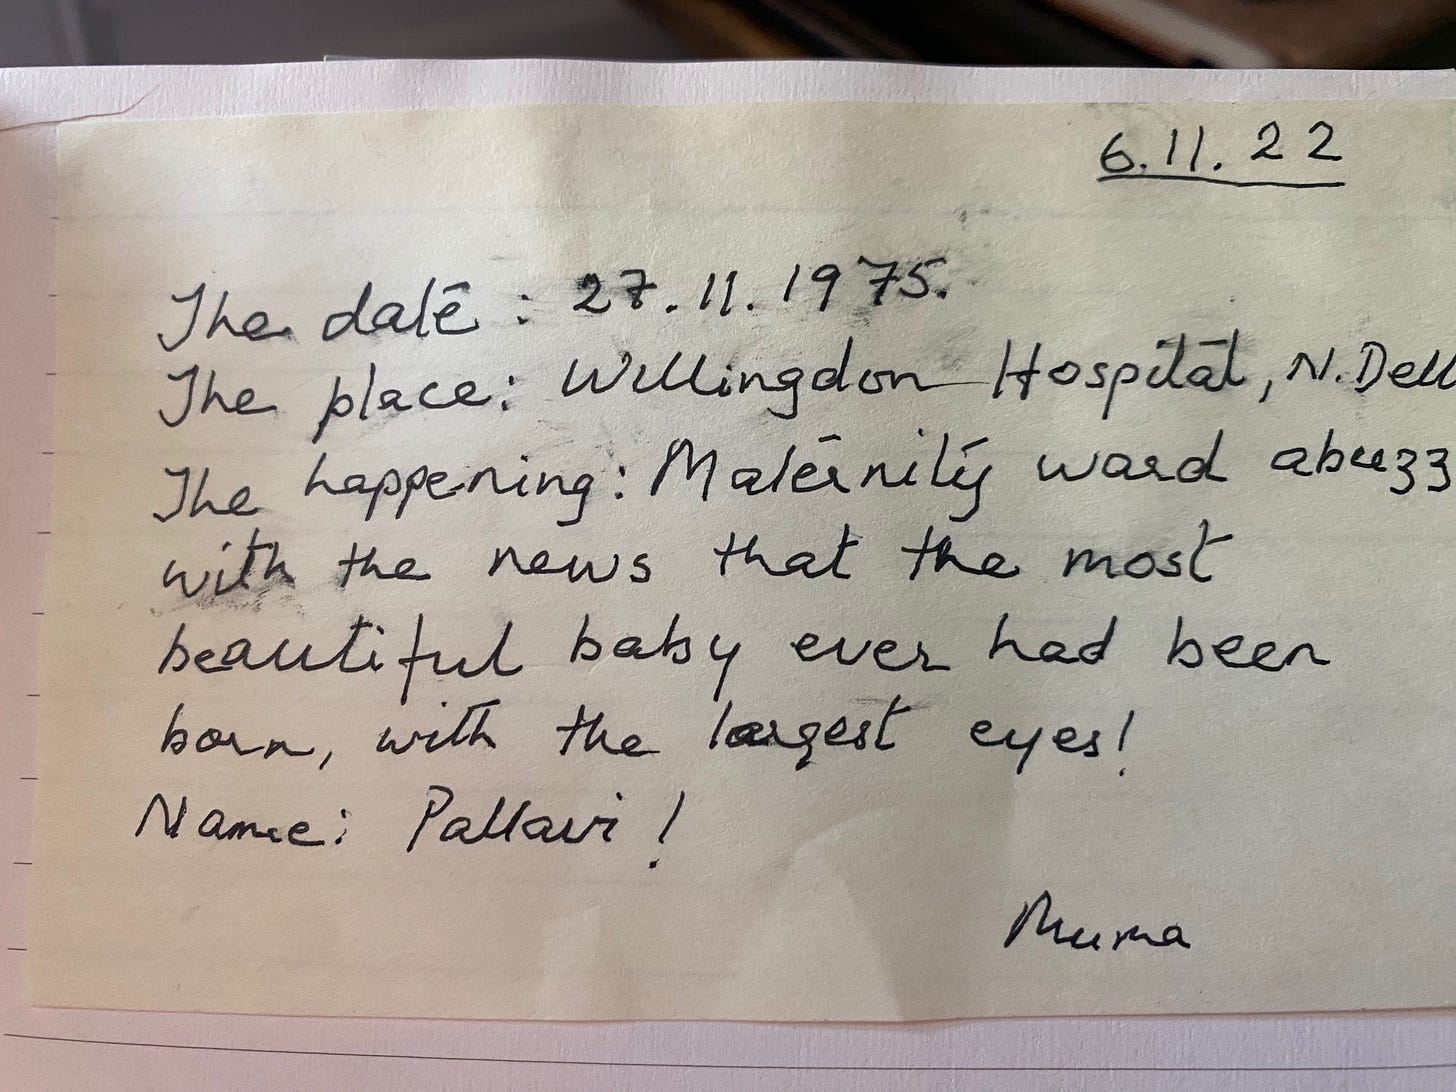 6.11.22
The date : 27.11.1975.
The place: Willingdon Hospital, N. Del
The happening: Maternity ward abuzz
with the news that the most
beautiful baby ever had been
born, with the largest eyes!
Name: Pallavi!
Muma